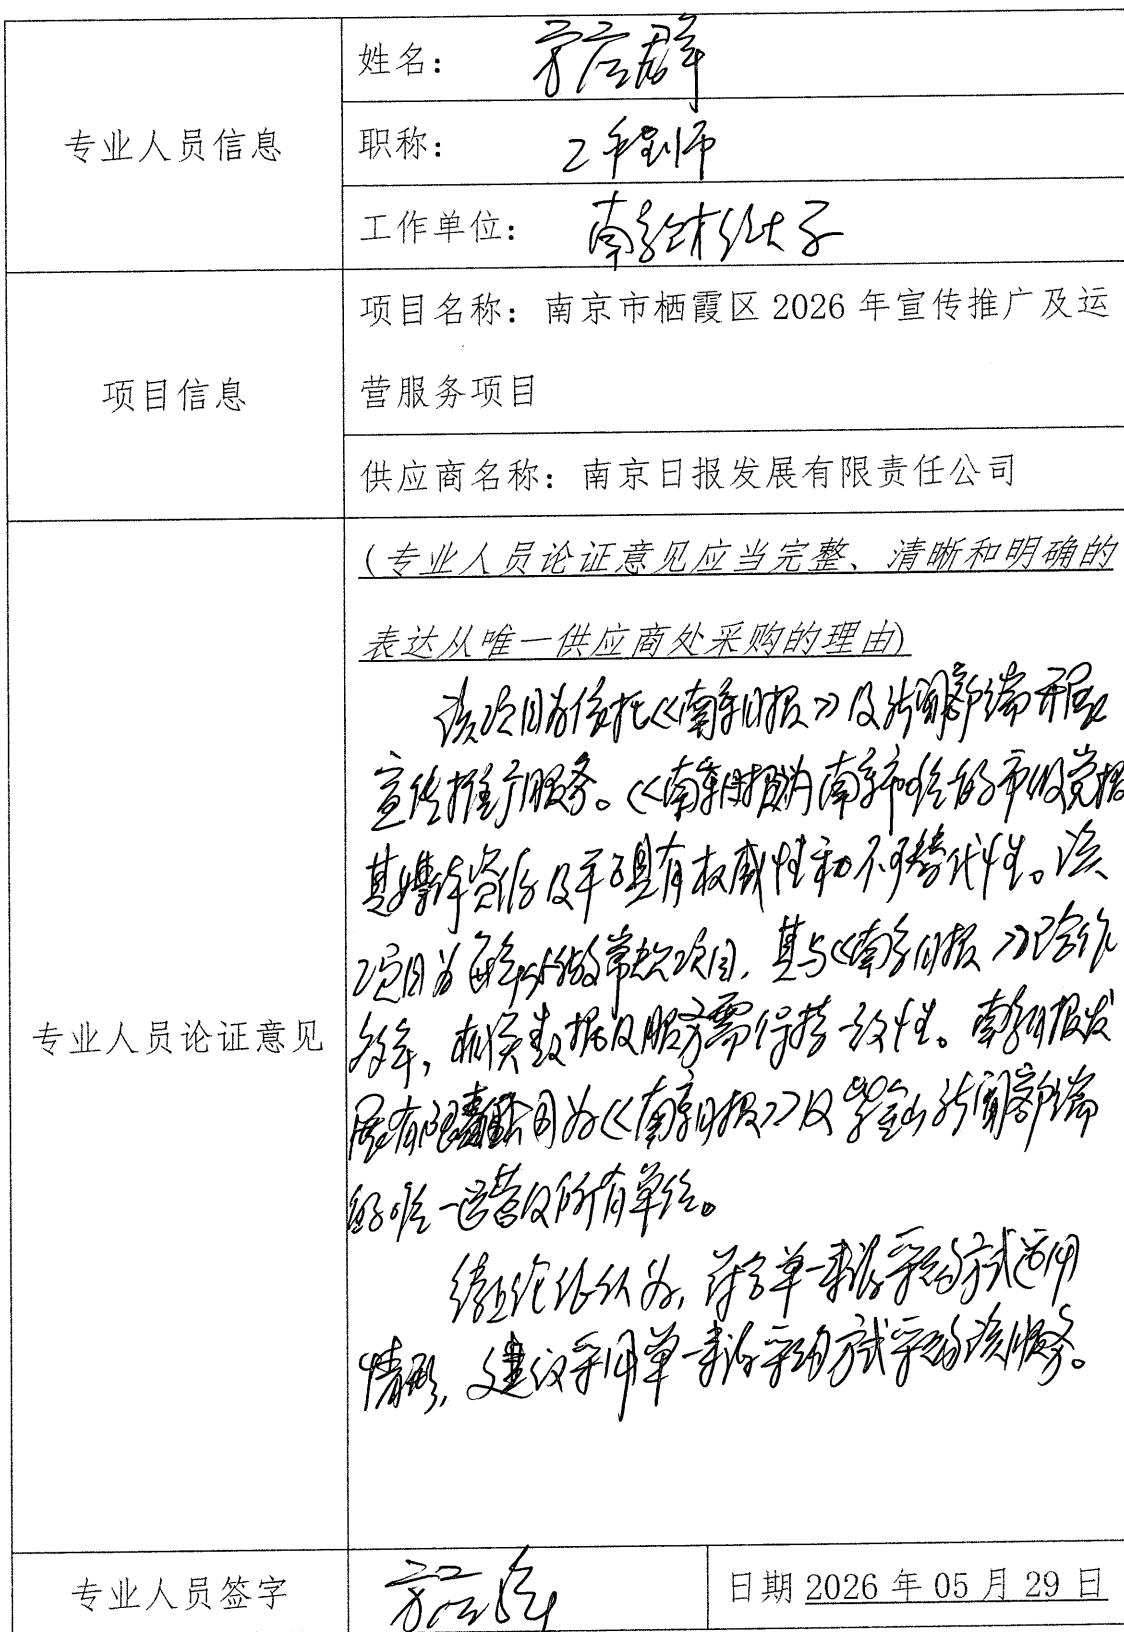 专业人员信息
姓名：
职称：工程师
工作单位：南京财经大学
项目信息
项目名称：南京市栖霞区 2026 年宣传推广及运
营服务项目
供应商名称：南京日报发展有限责任公司
专业人员论证意见
(专业人员论证意见应当完整、清晰和明确的
表达从唯一供应商处采购的理由)
该项目为依托《南京日报》及新闻客户端开展
宣传推广服务。《南京日报》为南京市唯一的市级党报
其媒体资源及平台具有权威性和不可替代性。该
项目为每年所做常规项目，其与《南京日报》已合作
多年，相关数据及服务需保持一致性。南京日报发
展有限责任公司为《南京日报》及紫金山新闻客户端
的唯一运营及所有单位。
综上论证认为，符合单一来源采购方式适用
情形，建议采用单一来源采购方式采购该服务。
专业人员签字
日期 2026 年 05 月 29 日